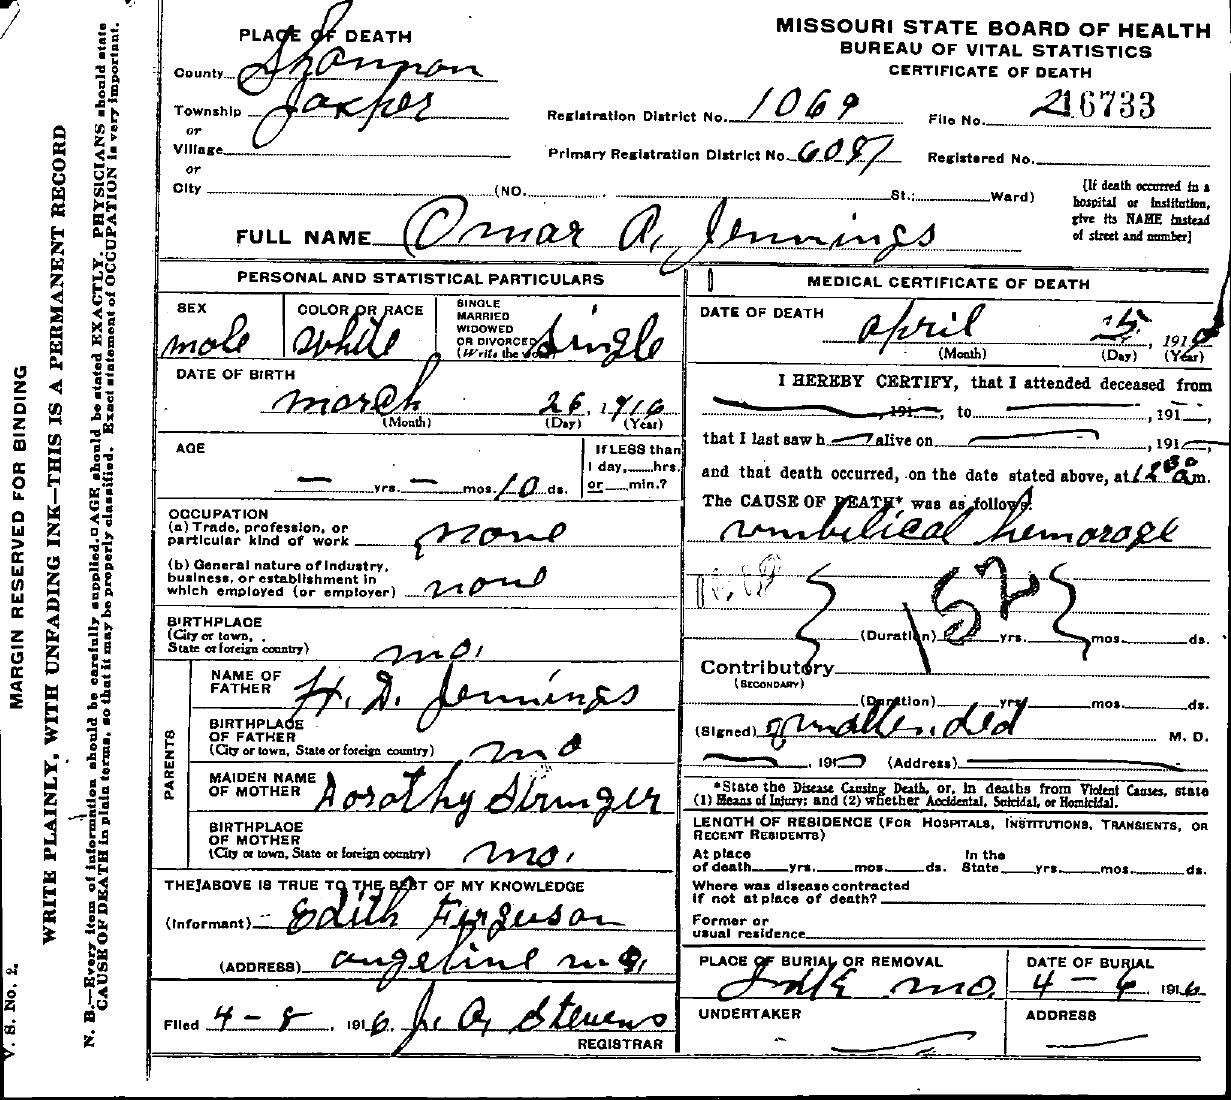 MISSOURI STATE BOARD OF HEALTH
BUREAU OF VITAL STATISTICS
CERTIFICATE OF DEATH
PLACE OF DEATH
County Shannon
Township Jasper
or
Village
or
City (NO. St.; Ward)
Registration District No. 1069
File No. 16733
Primary Registration District No. 6087
Registered No.
[If death occurred in a
hospital or institution,
give its NAME instead
of street and number]
FULL NAME Omar A. Jennings
PERSONAL AND STATISTICAL PARTICULARS
SEX
male
COLOR OR RACE
white
SINGLE
MARRIED
WIDOWED
OR DIVORCED
(Write the
single
DATE OF BIRTH
march 26, 1916
(Month) (Day) (Year)
AGE
— yrs. — mos. 10 ds.
If LESS than
1 day, hrs.
or min.?
OCCUPATION
(a) Trade, profession, or
particular kind of work none
(b) General nature of industry,
business, or establishment in
which employed (or employer) none
BIRTHPLACE
(City or town,
State or foreign country)
mo.
PARENTS
NAME OF
FATHER H. D. Jennings
BIRTHPLACE
OF FATHER
(City or town, State or foreign country) mo
MAIDEN NAME
OF MOTHER Dorothy Stringer
BIRTHPLACE
OF MOTHER
(City or town, State or foreign country) mo.
THE ABOVE IS TRUE TO THE BEST OF MY KNOWLEDGE
(Informant) Edith Ferguson
(ADDRESS) angeline mo.
Filed 4-8, 1916 J. A. Stevens
REGISTRAR
MEDICAL CERTIFICATE OF DEATH
DATE OF DEATH
april 5, 191
(Month) (Day) (Year)
I HEREBY CERTIFY, that I attended deceased from
, 191 , to , 191
that I last saw h alive on , 191
and that death occurred, on the date stated above, at 12 30 a m.
The CAUSE OF DEATH* was as follows:
umbilical hemorage
152
(Duration) yrs. mos. ds.
Contributory
(SECONDARY)
(Duration) yrs. mos. ds.
(Signed) unattended M. D.
, 191 (Address)
*State the Disease Causing Death, or, in deaths from Violent Causes, state
(1) Means of Injury; and (2) whether Accidental, Suicidal, or Homicidal.
LENGTH OF RESIDENCE (FOR HOSPITALS, INSTITUTIONS, TRANSIENTS, OR
RECENT RESIDENTS)
At place
of death yrs. mos. ds.
In the
State yrs. mos. ds.
Where was disease contracted
If not at place of death?
Former or
usual residence
PLACE OF BURIAL OR REMOVAL
mo.
DATE OF BURIAL
4-6 1916
UNDERTAKER
ADDRESS
MARGIN RESERVED FOR BINDING
WRITE PLAINLY, WITH UNFADING INK—THIS IS A PERMANENT RECORD
N. B.—Every item of information should be carefully supplied. AGE should be stated EXACTLY. PHYSICIANS should state
CAUSE OF DEATH in plain terms, so that it may be properly classified. Exact statement of OCCUPATION is very important.
V. S. No. 2.